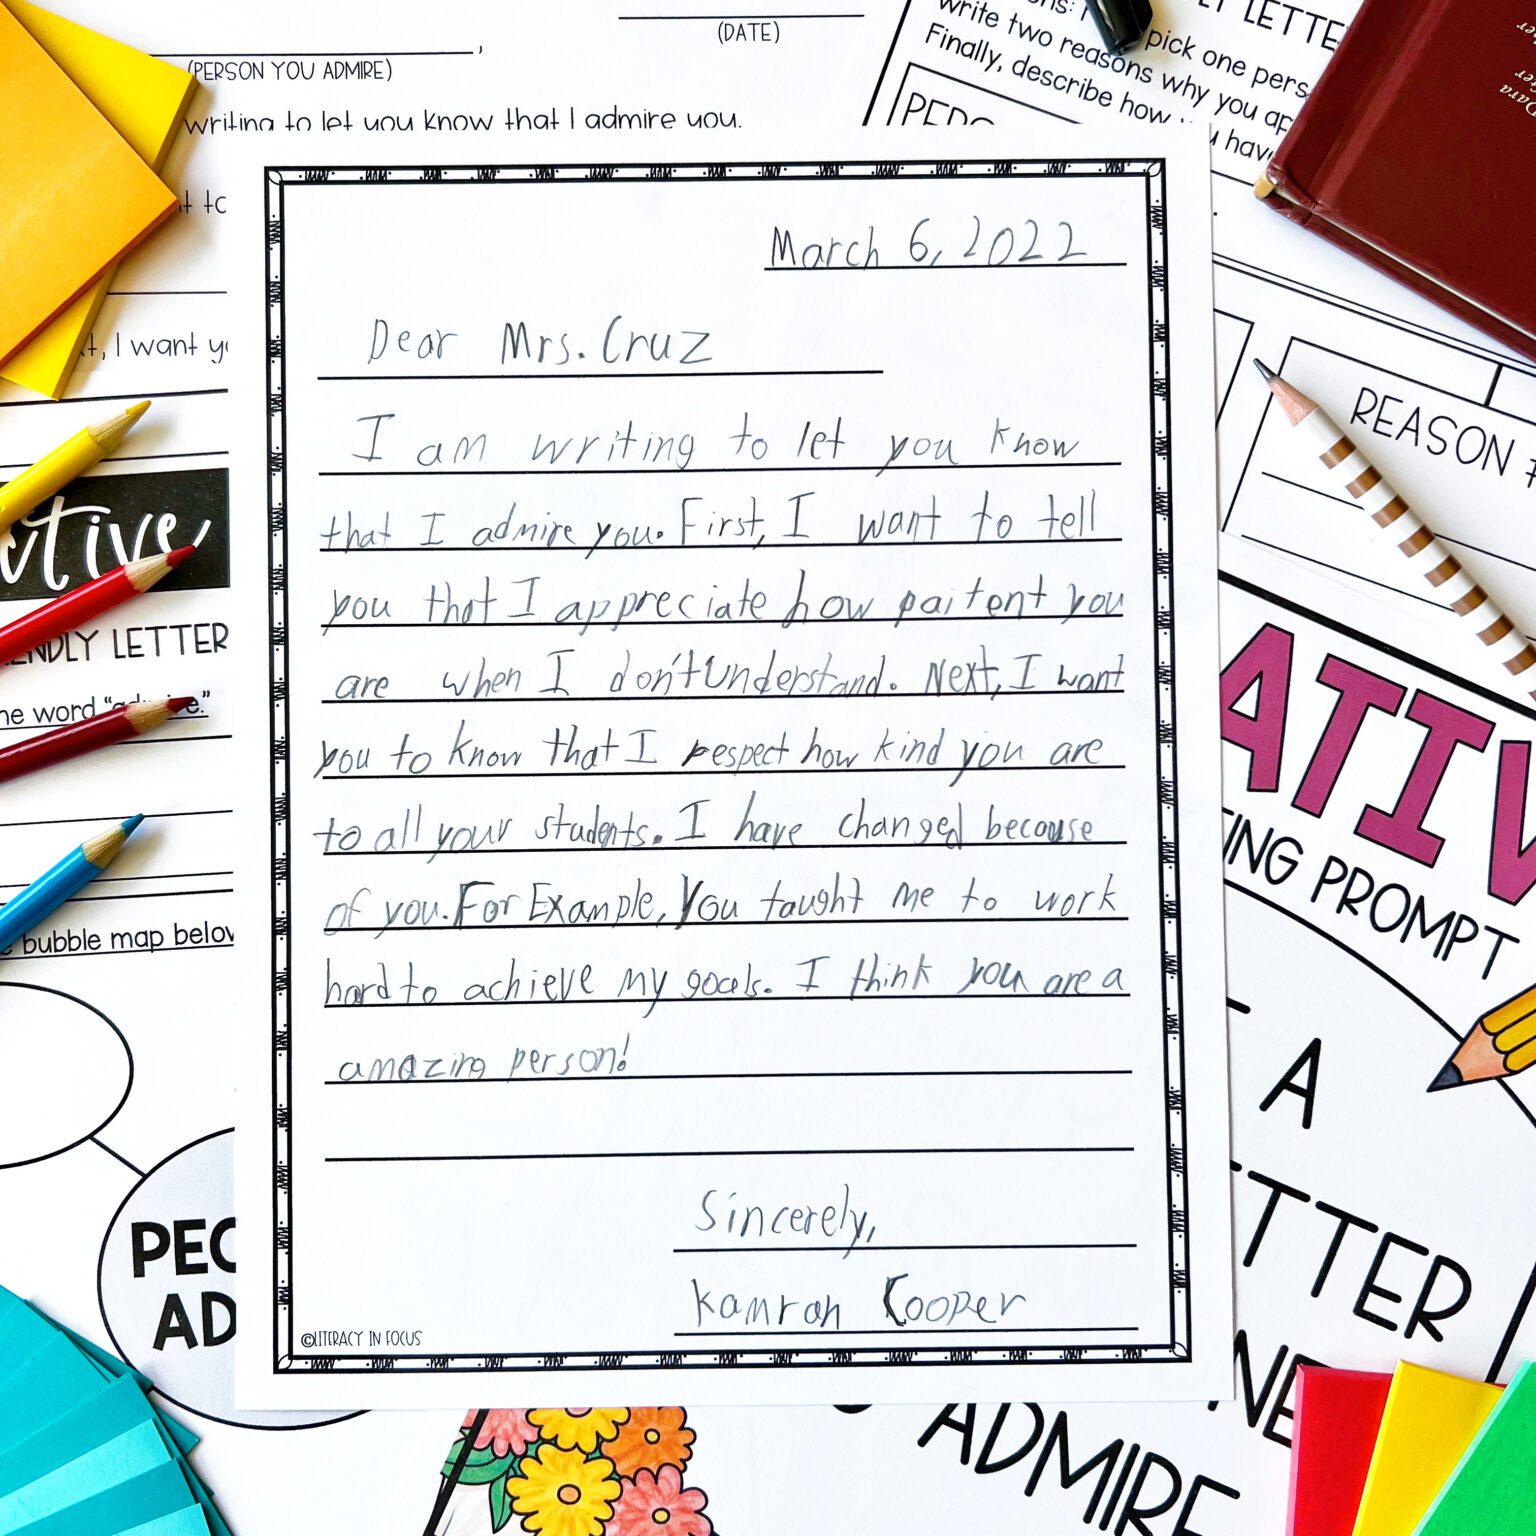 (DATE)
(PERSON YOU ADMIRE)
writing to let you know that I admire you.
, I want
LETTE
pick one pers
write two reasons why you ap
Finally, describe how
hav
March 6, 2022
Dear Mrs. Cruz
I am writing to let you know
that I admire you. First, I want to tell
you that I appreciate how paitent you
are when I don't Understand. Next, I want
you to know that I respect how kind you are
to all your students. I have changed because
of you. For Example, You taught me to work
hard to achieve my goals. I think you are a
amazing person!
Sincerely,
Kamran Cooper
©LITERACY IN FOCUS
REASON #
ative
NDLY LETTER
he word "admire."
bubble map below
PEO
AD
ATIV
ING PROMPT
A
TTER
NE
ADMIRE
Dara